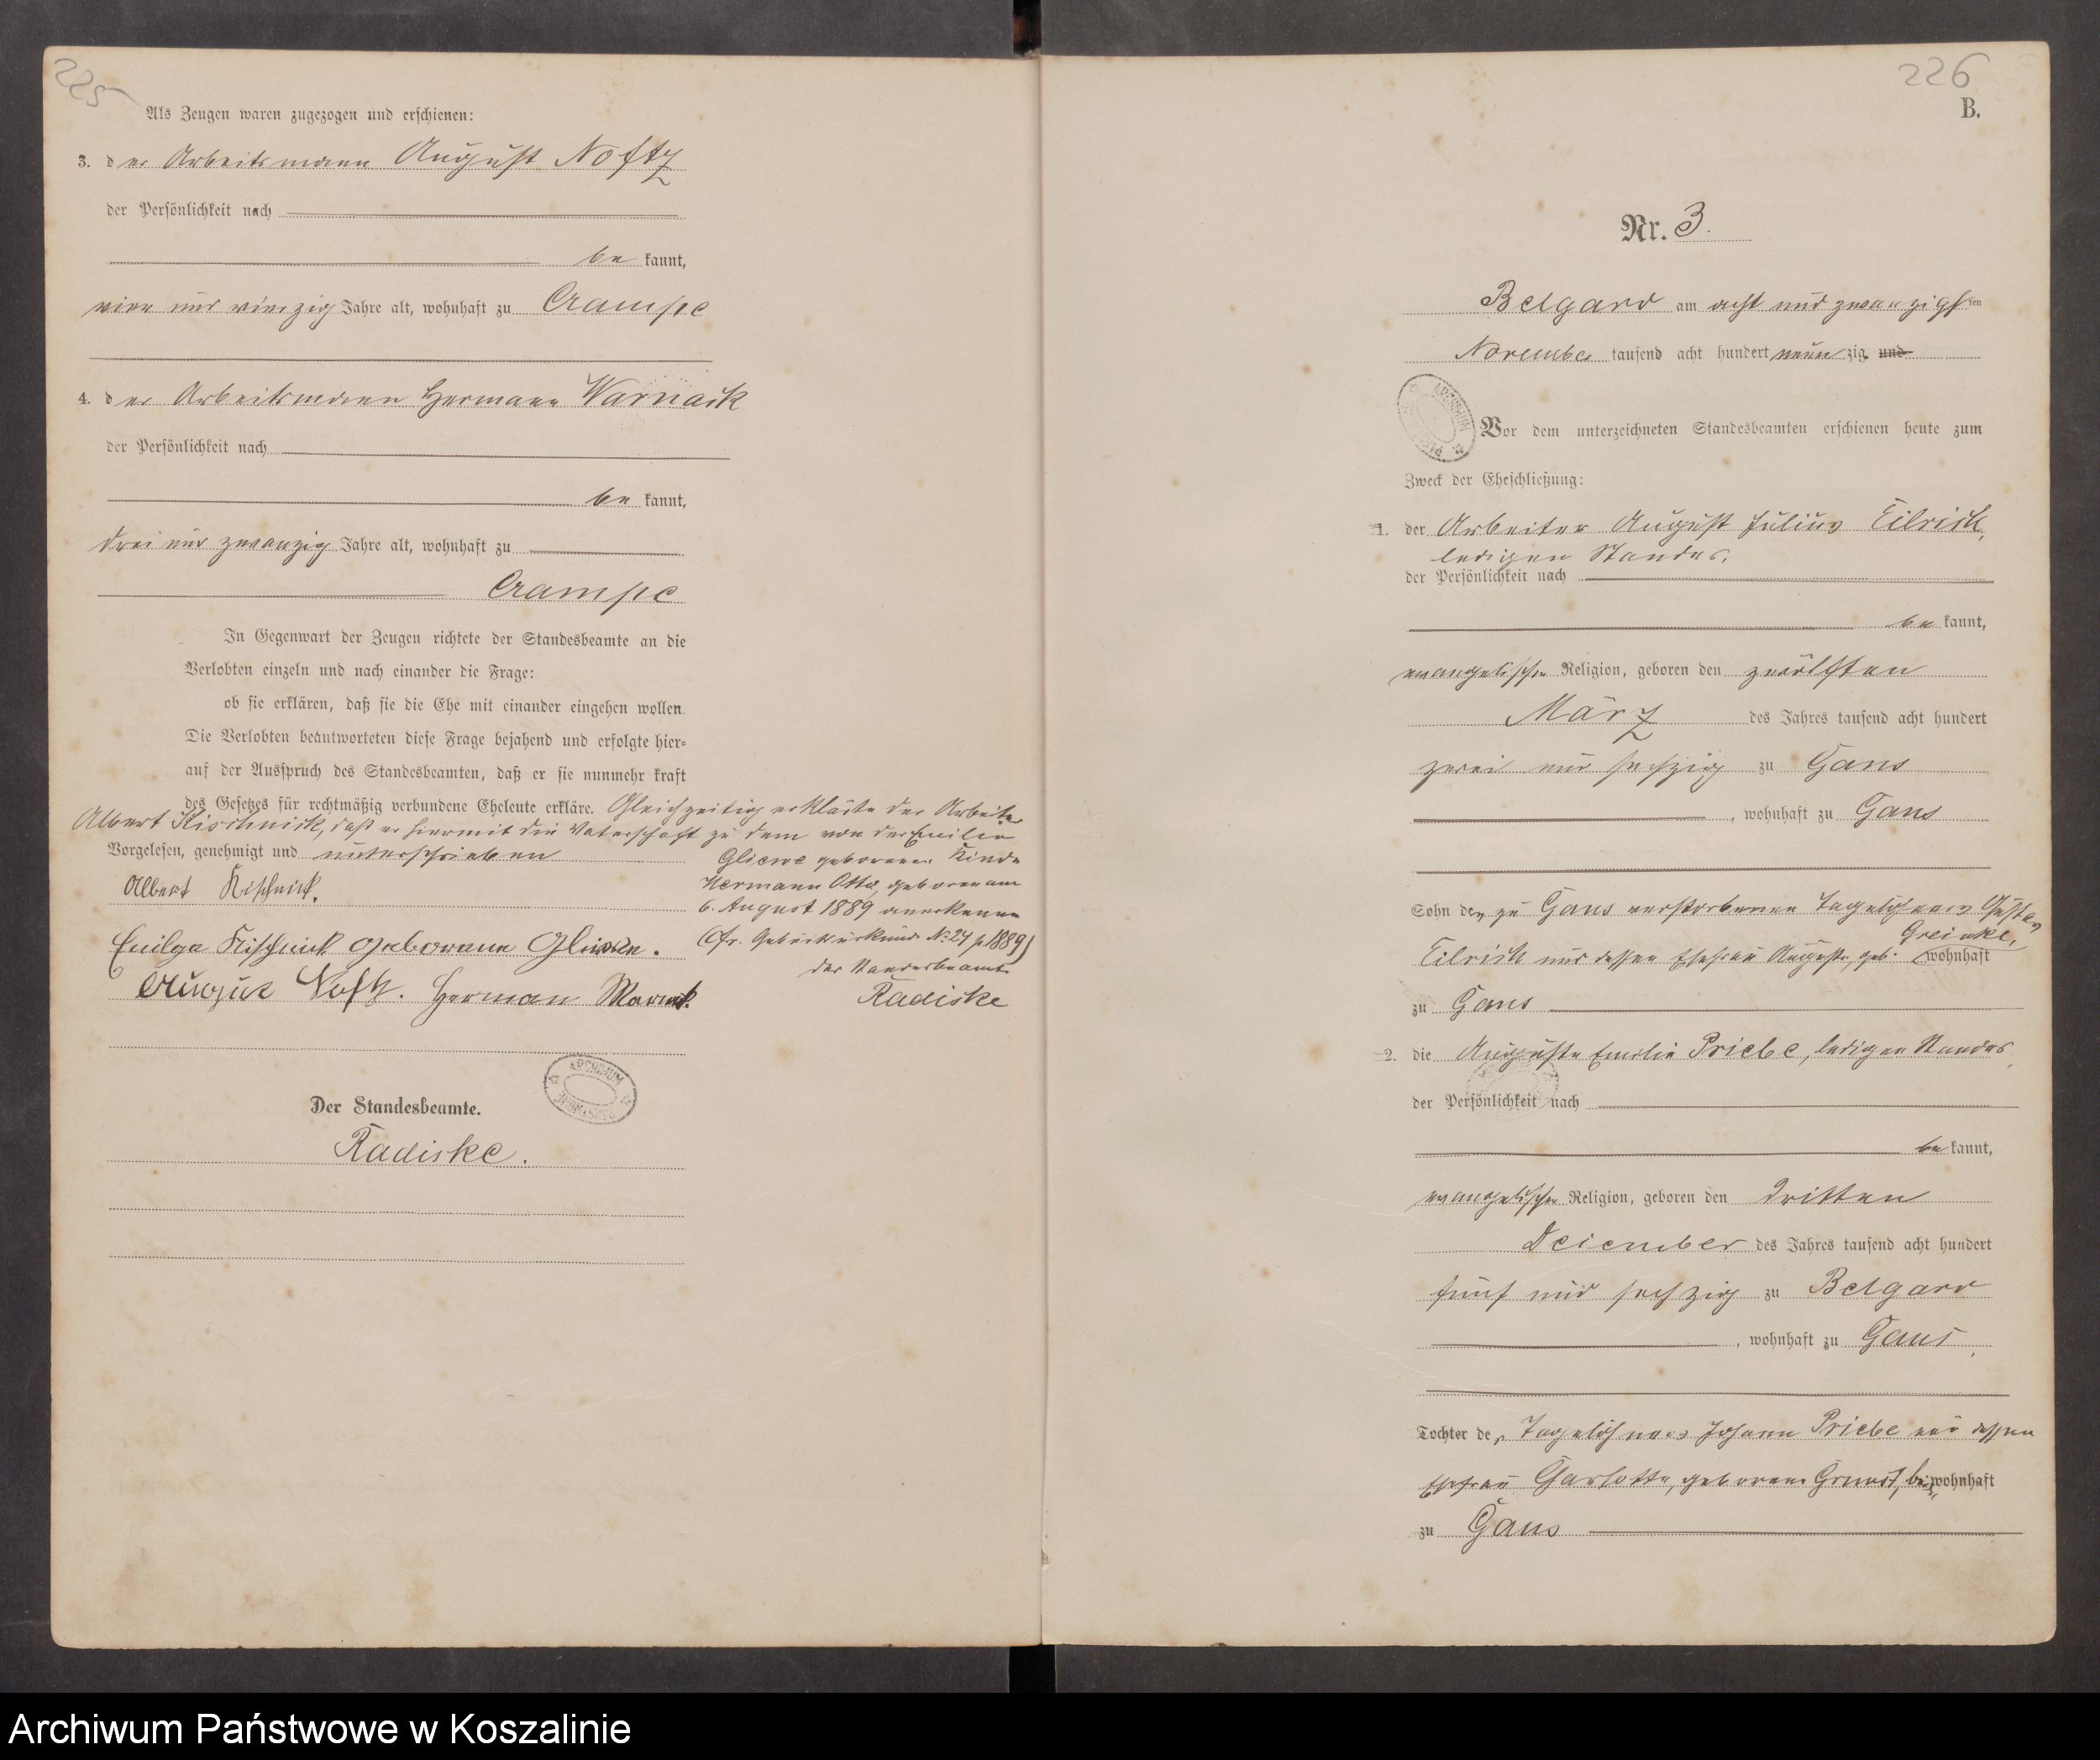 225
Als Zeugen waren zugezogen und erschienen:
3. der Arbeitsmann August Noftz
der Persönlichkeit nach
be kannt,
vier und vierzig Jahre alt, wohnhaft zu Crampe
4. der Arbeitsmann Hermann Warnack
der Persönlichkeit nach
be kannt,
drei und zwanzig Jahre alt, wohnhaft zu
Crampe
In Gegenwart der Zeugen richtete der Standesbeamte an die
Verlobten einzeln und nach einander die Frage:
ob sie erklären, daß sie die Ehe mit einander eingehen wollen.
Die Verlobten beantworteten diese Frage bejahend und erfolgte hier-
auf der Ausspruch des Standesbeamten, daß er sie nunmehr kraft
des Gesetzes für rechtmäßig verbundene Eheleute erkläre. Gleichzeitig erklärte der Arbeiter
Albert Kischnick, daß er hiermit die Vaterschaft zu dem von der Emilie
Gliewe geborenen Kinde
Hermann Otto, geboren am
6. August 1889 anerkenne
(cfr. Geburtsurkunde No. 24 p. 1889)
Der Standesbeamte
Radiske
Vorgelesen, genehmigt und unterschrieben
Albert Kischnick.
Kischnick geborene
August Noftz. Herman
Der Standesbeamte.
Radiske.
226
B.
Nr. 3.
Belgard am acht und zwanzigsten
November tausend acht hundert neun zig und
Vor dem unterzeichneten Standesbeamten erschienen heute zum
Zweck der Eheschließung:
1. der Arbeiter August Julius Tilrick,
ledigen Standes,
der Persönlichkeit nach
be kannt,
evangelischer Religion, geboren den zwölften
März des Jahres tausend acht hundert
zwei und sechzig zu Gans
, wohnhaft zu Gans
Sohn des zu Gans verstorbenen Tagelöhners
Tilrick und dessen Ehefrau Auguste, geb. Greinke, wohnhaft
zu Gans
2. die Auguste Emilie Priebe, ledigen Standes,
der Persönlichkeit nach
be kannt,
evangelischer Religion, geboren den dritten
Dezember des Jahres tausend acht hundert
fünf und sechzig zu Belgard
, wohnhaft zu Gans,
Tochter des Tagelöhners Johann Priebe und dessen
Ehefrau Charlotte, geborene wohnhaft
zu Gans
Archiwum Państwowe w Koszalinie